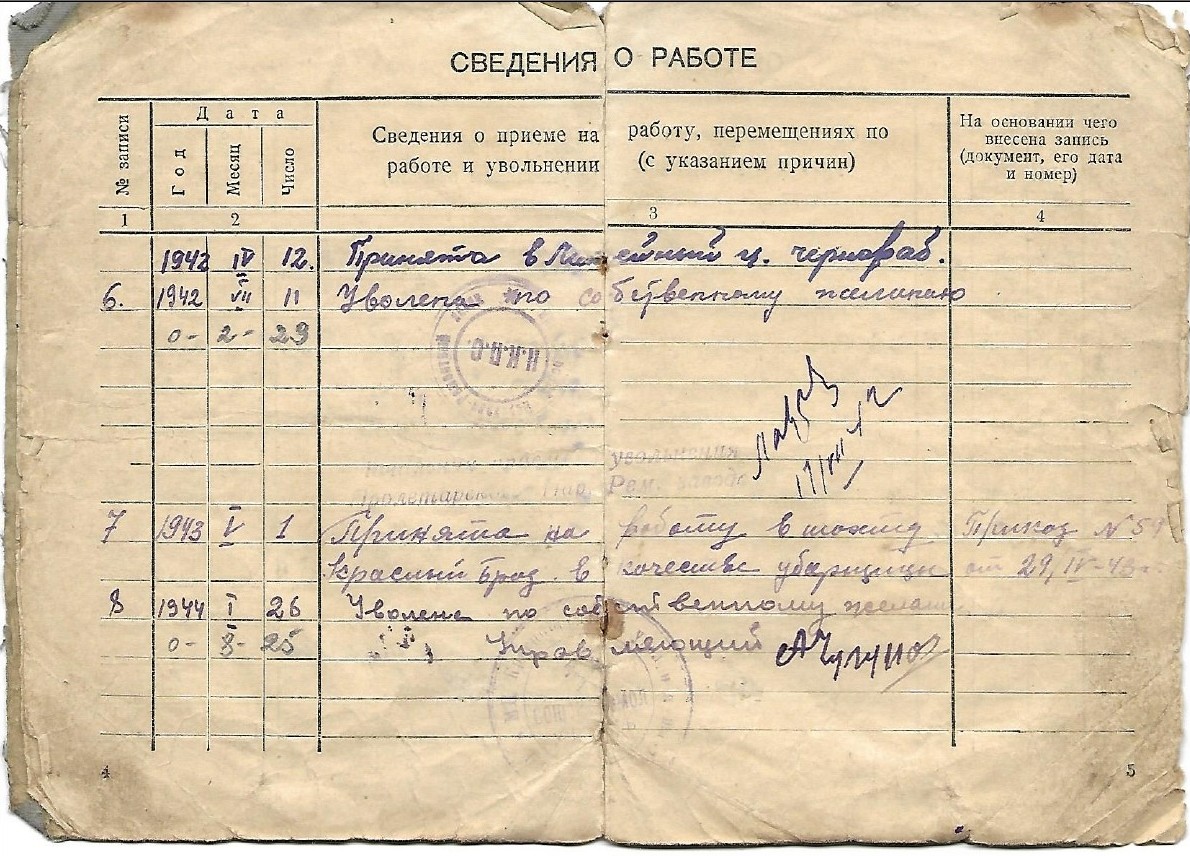 СВЕДЕНИЯ О РАБОТЕ
№ записи
Дата
Год
Месяц
Число
Сведения о приеме на работу, перемещениях по
работе и увольнении (с указанием причин)
На основании чего
внесена запись
(документ, его дата
и номер)
1 2 3 4
1942 IV 12. Принята в ц. чернораб.
6. 1942 VII 11 Уволена по собственному желанию
0- 2- 29
Н.К.П.С.
увольнения
Пролетарского Пар. Рем. завода
7 1943 V 1 Принята на работу в шахту Приказ N 59
Красный Брод. в качестве уборщицы от 29/IV-43г.
8 1944 I 26 Уволена по собственному желан
0- 8- 25 Управляющий
4
5